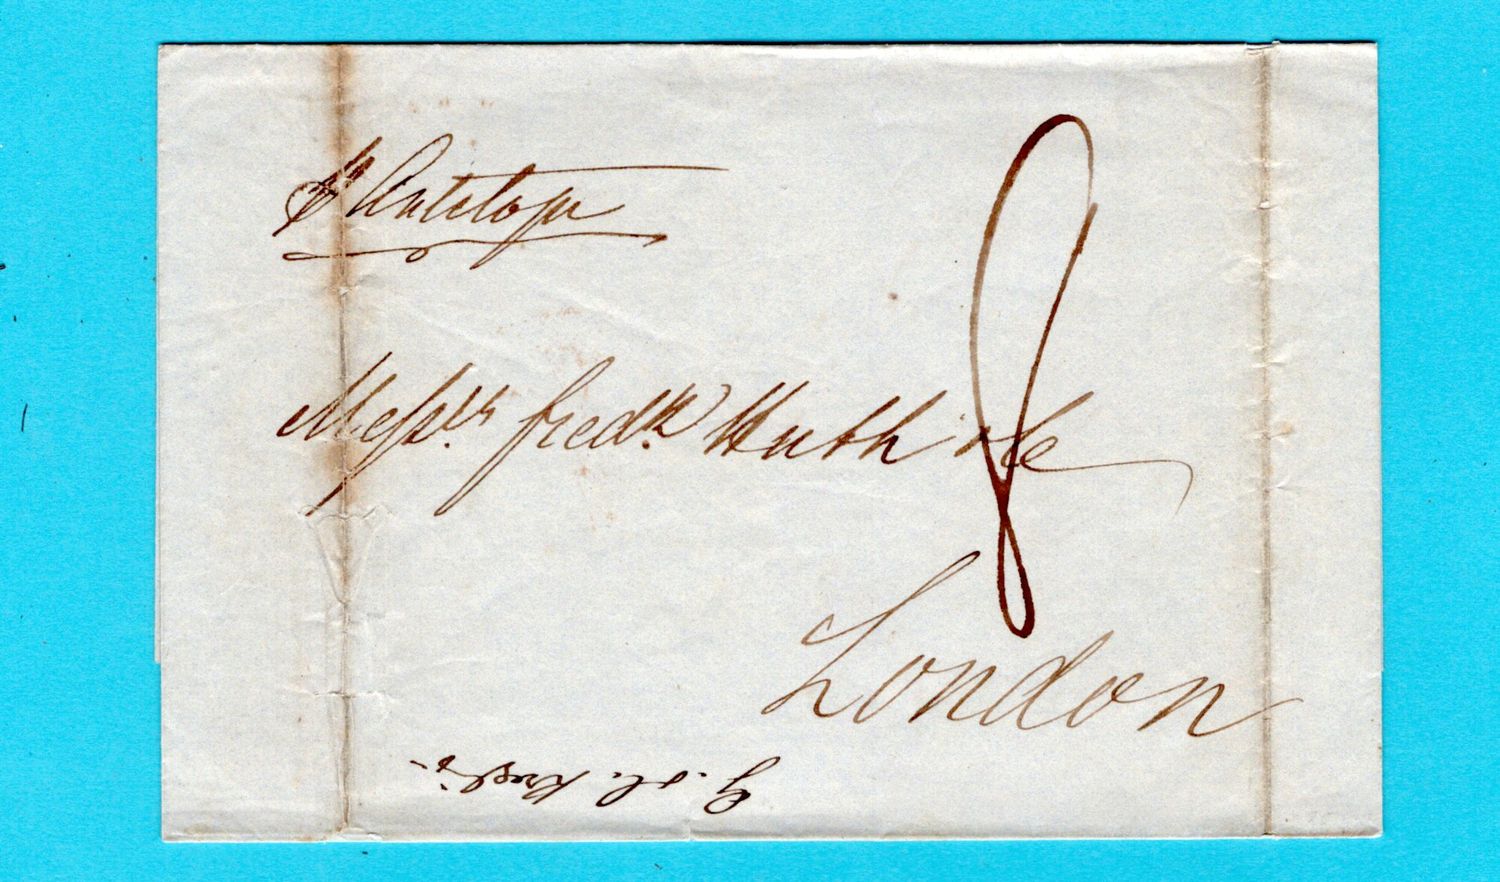 p Antelope
Messrs. Fredk. Huth & Co
8
London